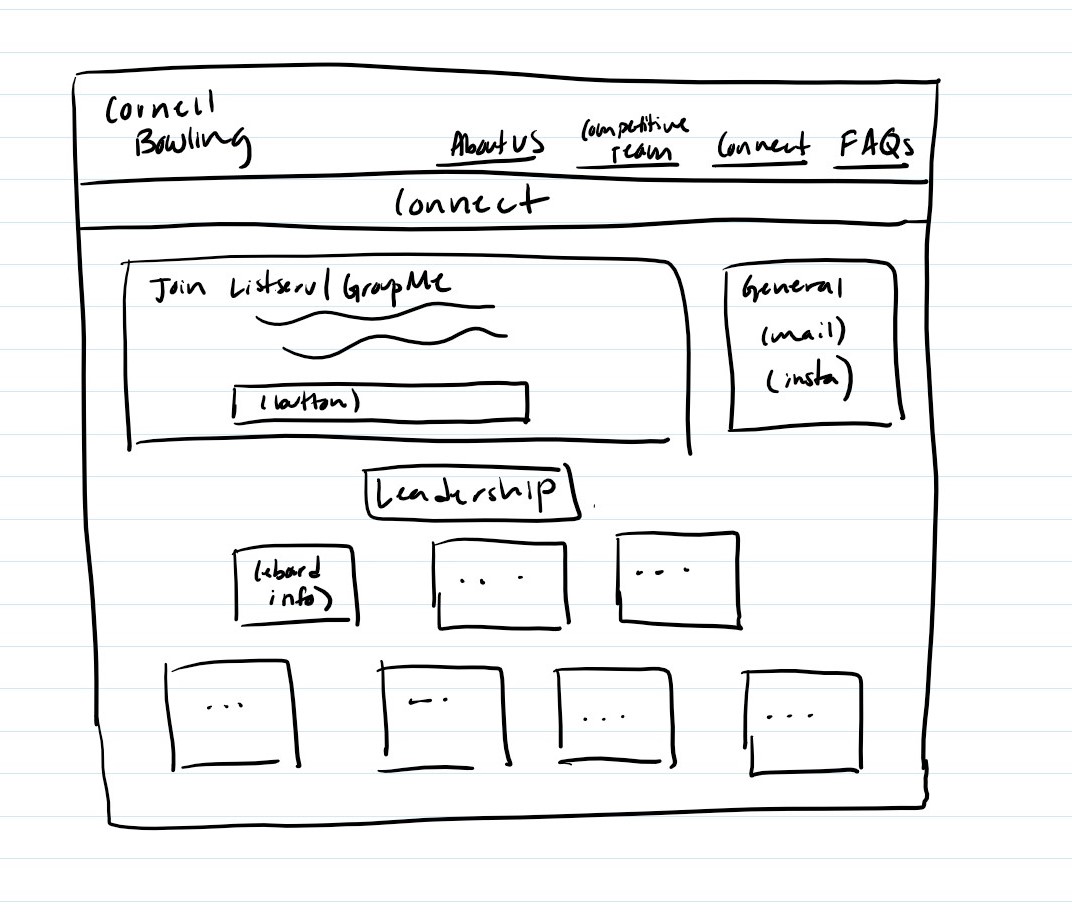 Cornell
Bowling
About US
Competitive
Team
Connect
FAQs
Connect
Join Listserv/GroupMe
General
(mail)
(insta)
(button)
Leadership
(eboard
info)
...
...
...
...
...
...